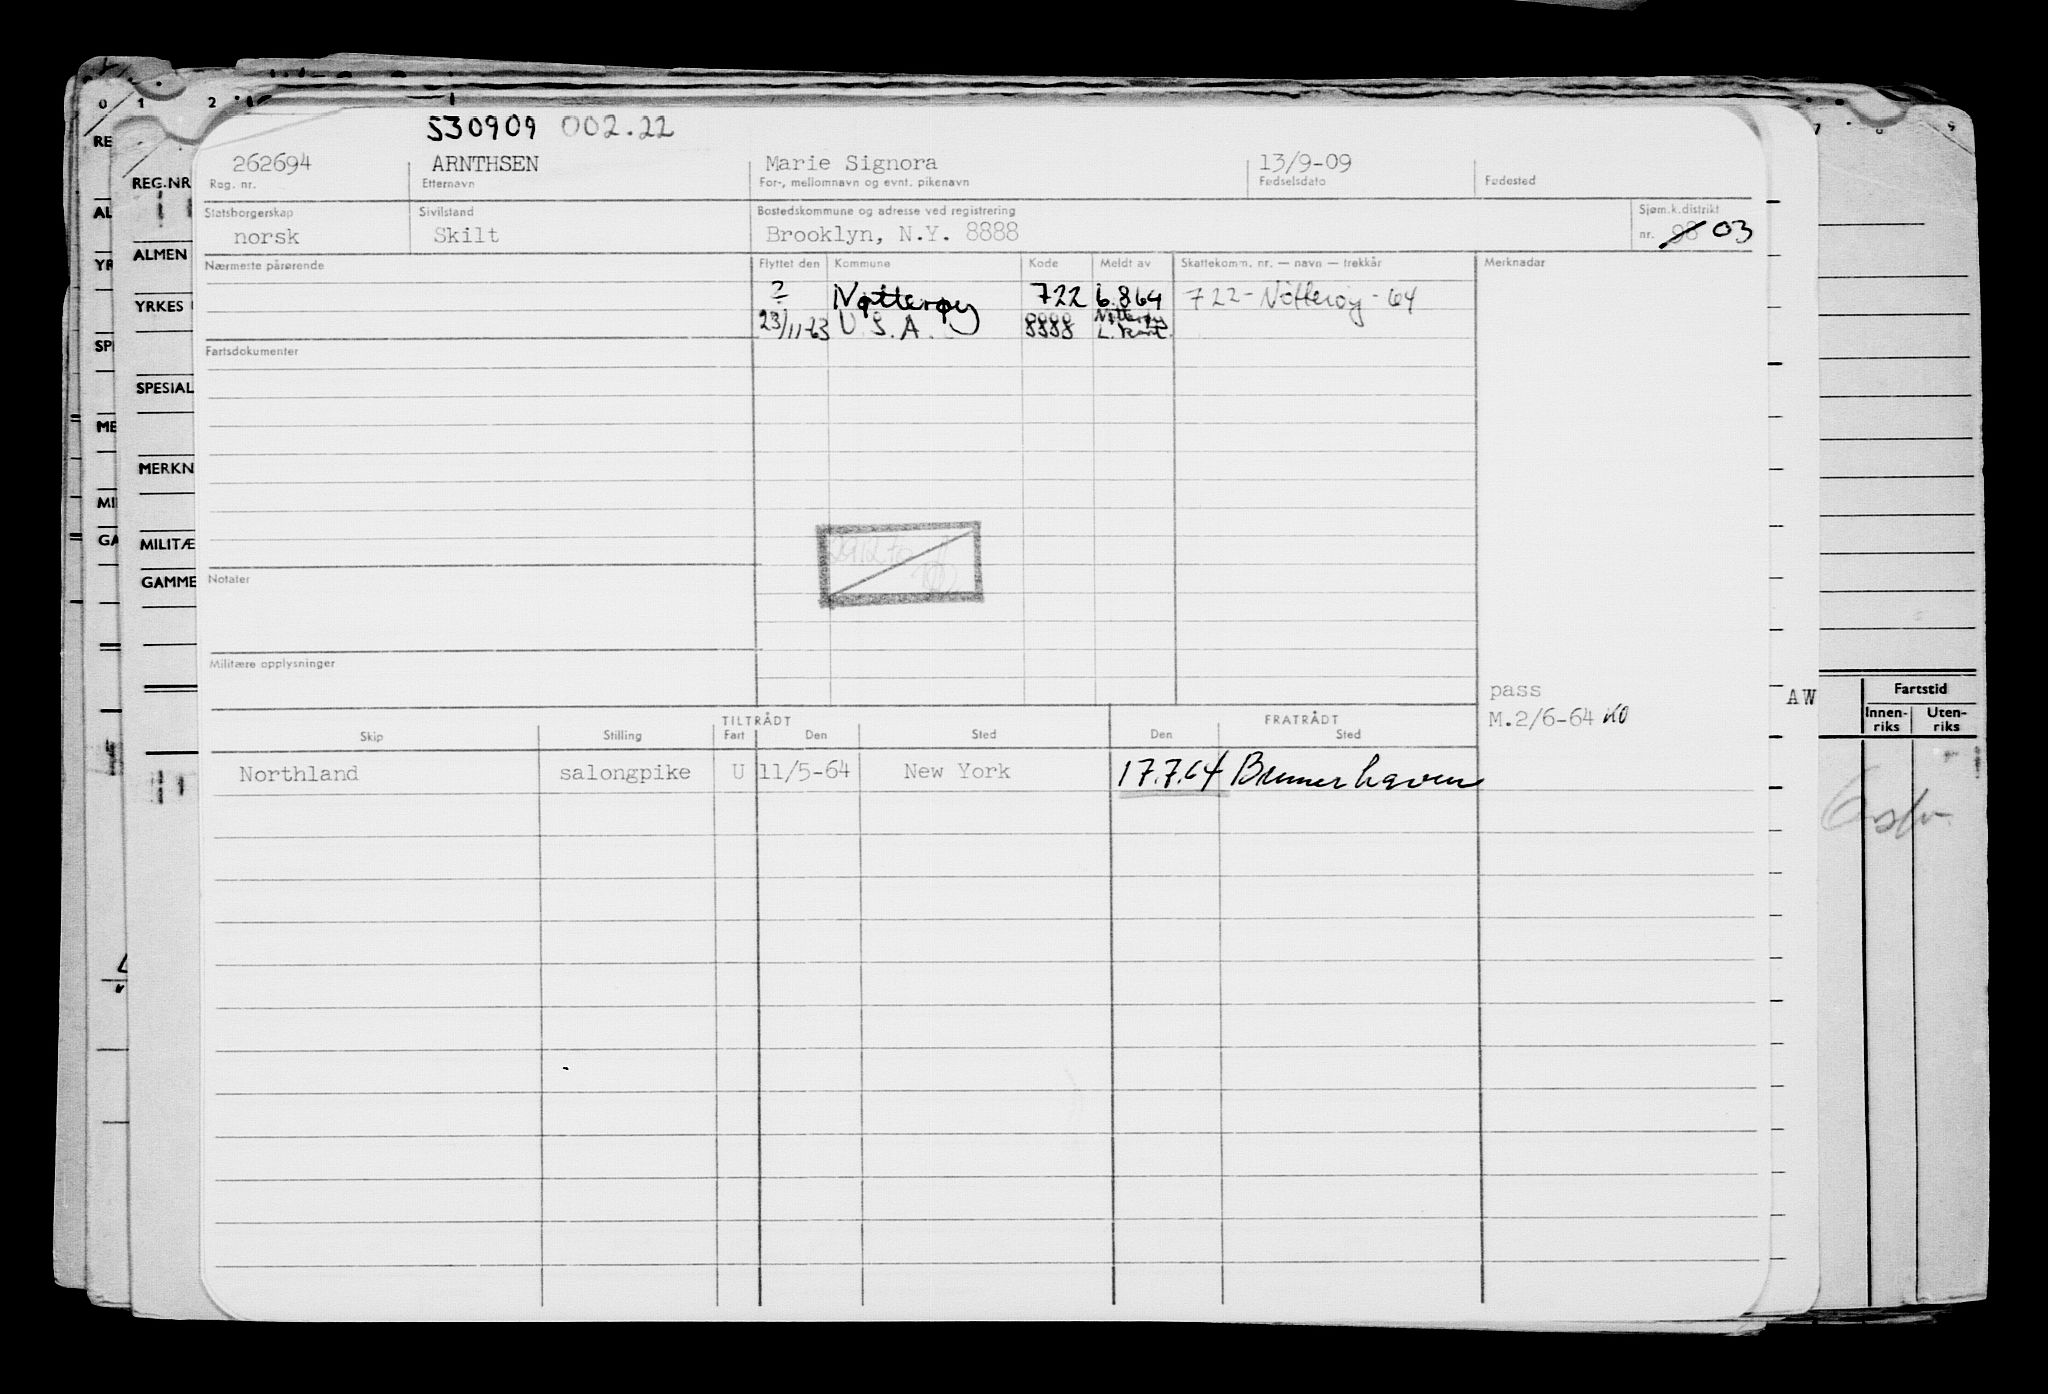 0 1 2 7 8 9
530909 002.22
262694 ARNTHSEN Marie Signora 13/9-09
Reg. nr. Etternavn For-, mellomnavn og evnt. pikenavn Fødselsdato Fødested
Statsborgerskap Sivilstand Bostedskommune og adresse ved registrering Sjøm.k.distrikt
norsk Skilt Brooklyn, N.Y. 8888 nr. 98 03
Nærmeste pårørende Flyttet den Kommune Kode Meldt av Skattekomm. nr. — navn — trekkår Merknader
? Nøtterøy 722 6.8.64 722 - Nøtterøy - 64
23/11-63 U.S.A. 8888 Nøtterøy
Fartsdokumenter
Notater
Militære opplysninger
pass
M.2/6-64
TILTRÅDT FRATRÅDT
Skip Stilling Fart Den Sted Den Sted
Northland salongpike U 11/5-64 New York 17.7.64 Bremerhaven
RE
AL
YR
SPI
ME
MI
GA
REG.NR
ALMEN
YRKES
SPESIAL
MERKN
MILITÆ
GAMME
AW
Fartstid
Innen-riks Uten-riks